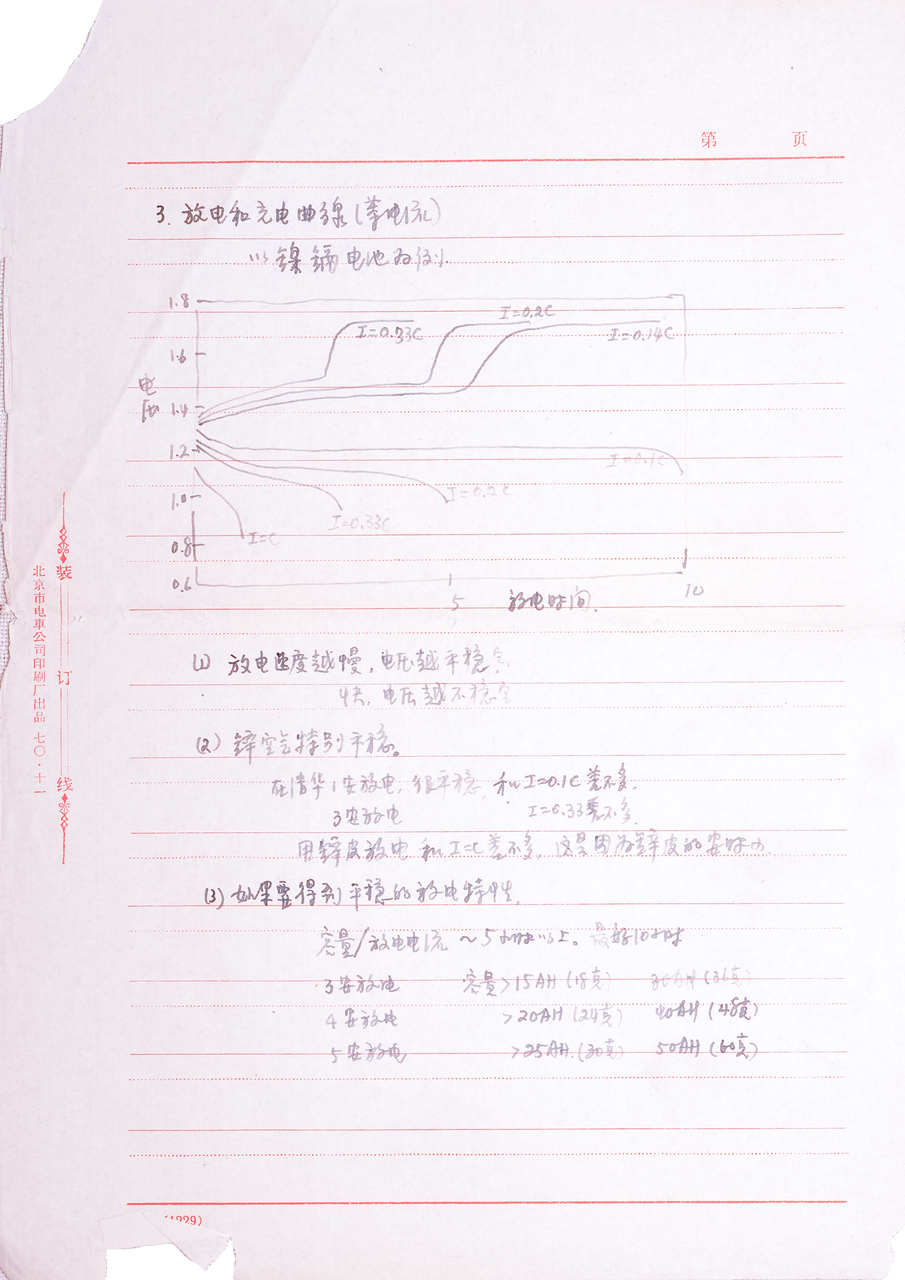 第 页
3. 放电和充电曲线(等电流)
以镍镉电池为例.
1.8
1.6
1.4
1.2
1.0
0.8
0.6
电压
I=0.33C
I=0.2C
I=0.14C
I=0.1C
I=0.2C
I=0.33C
I=C
5
10
放电时间.
(1) 放电速度越慢,电压越平稳
快,电压越不稳定
(2) 锌空气特别平稳。
在清华1安放电,很平稳,和I=0.1C差不多.
3安放电 I=0.33差不多.
用锌皮放电和I=C差不多,这是因为锌皮的安时小.
(3) 如果要得到平稳的放电特性,
容量/放电电流 ~5小时以上。最好10小时
3安放电 容量>15AH (18克) 30AH (36克)
4安放电 >20AH (24克) 40AH (48克)
5安放电 >25AH.(30克) 50AH (60克)
装订线
北京市电車公司印刷厂出品 七〇·十一